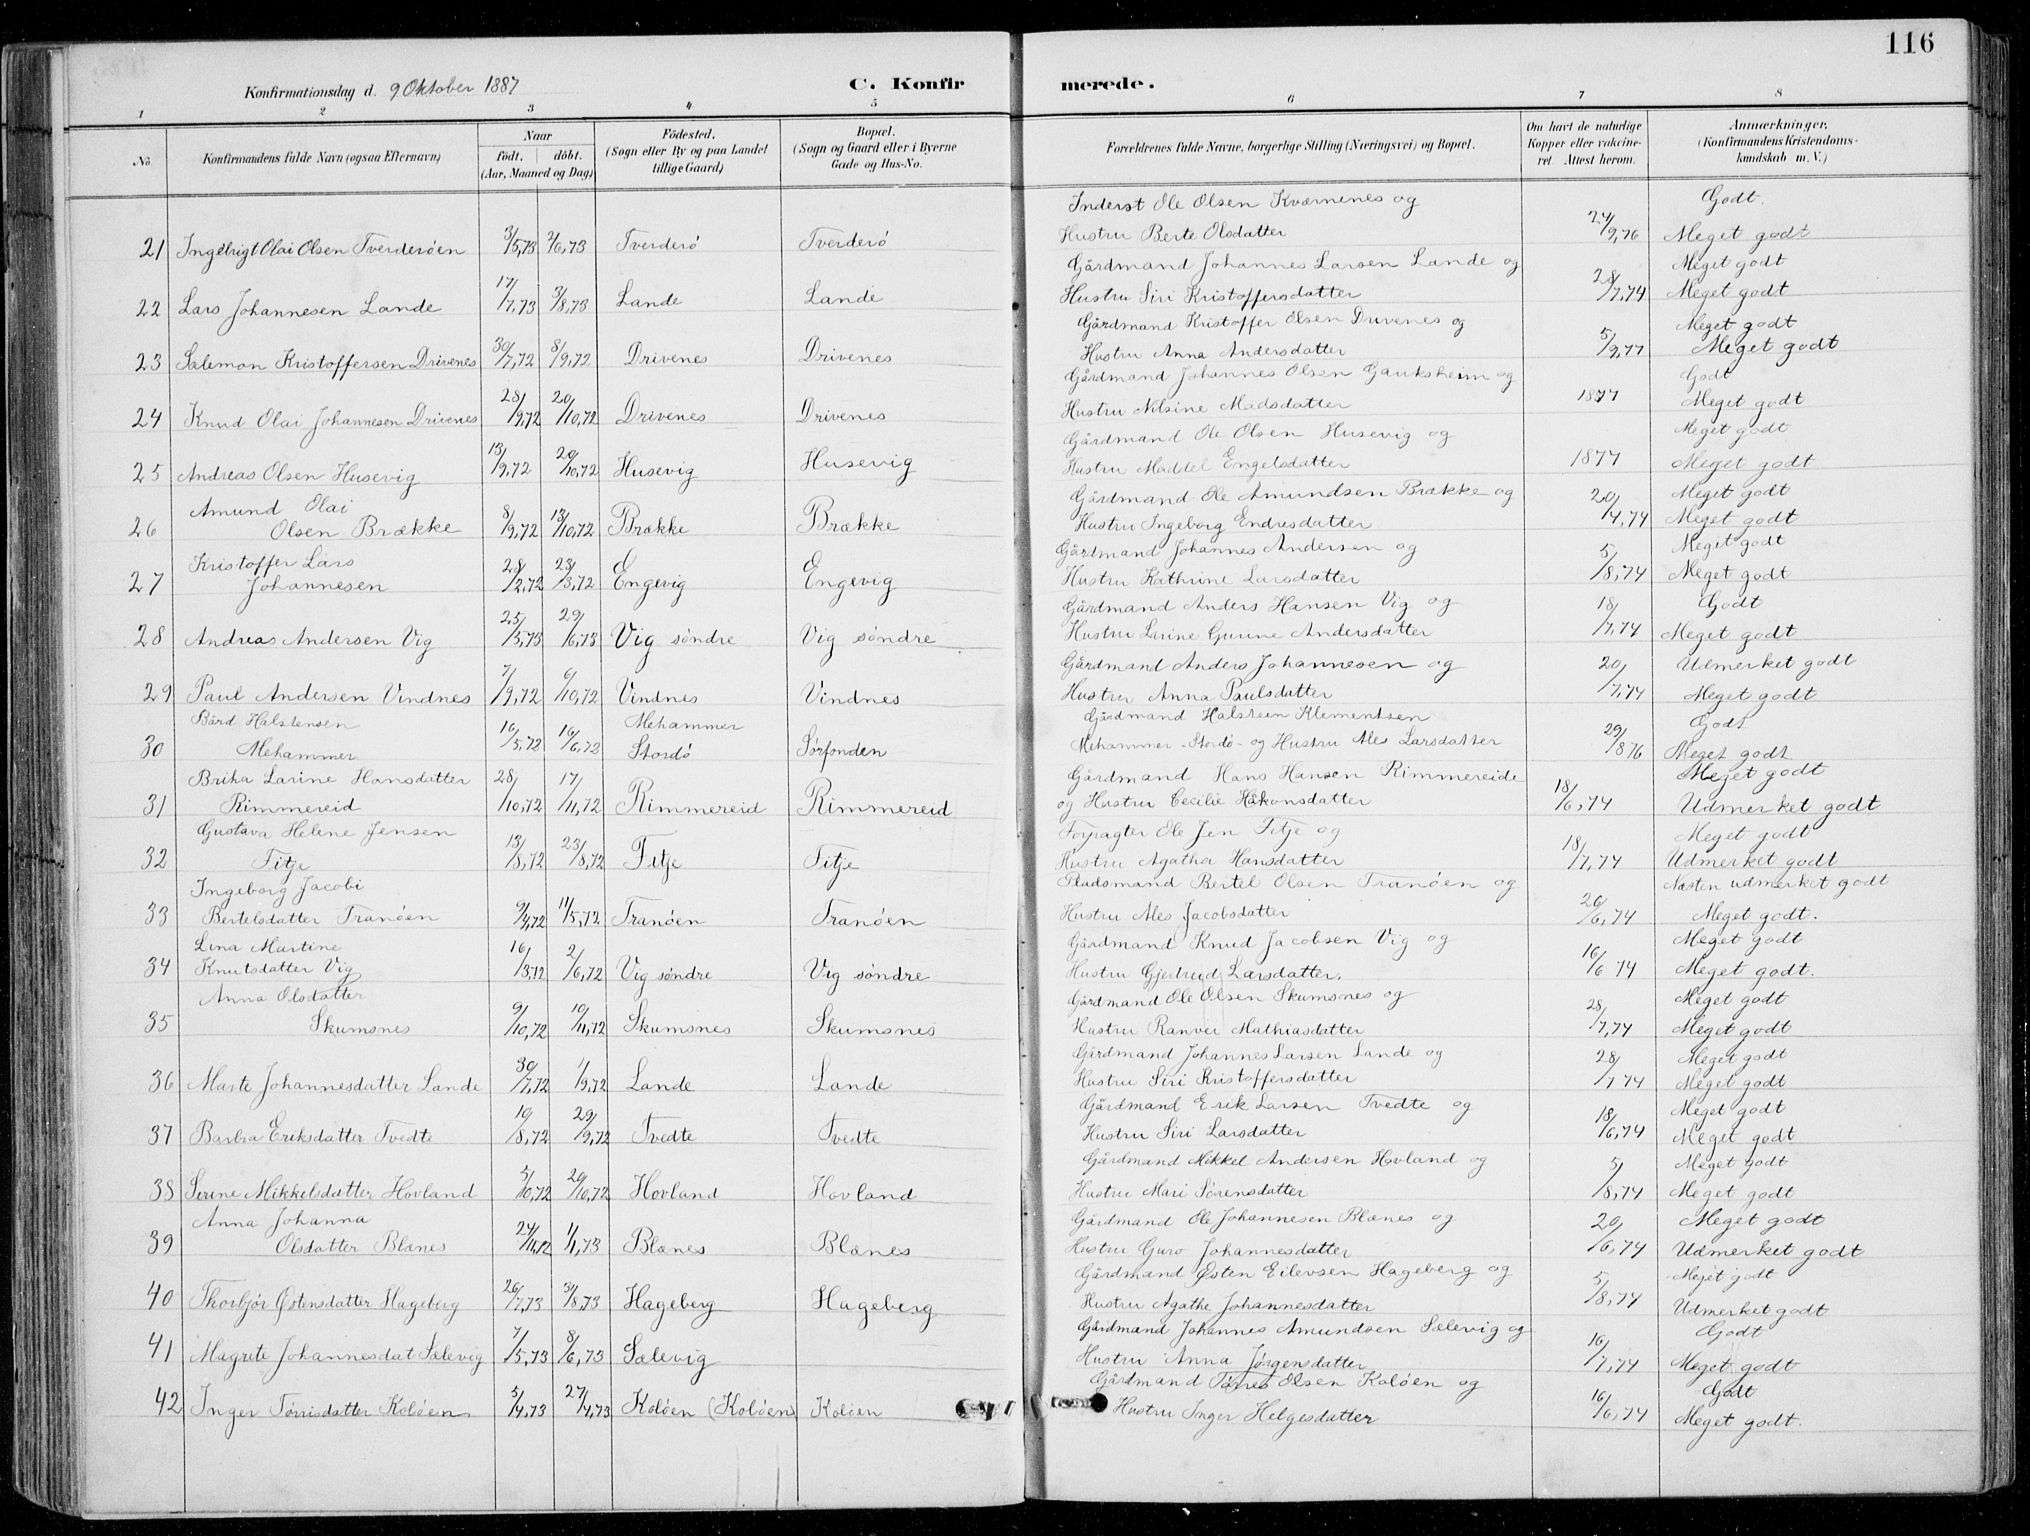 116
Konfirmationsdag d. 9 Oktober 1887
C. Konfirmerede.
1 2 3 4 5 6 7 8
No.
Konfirmandens fulde Navn (ogsaa Efternavn)
Naar
födt. döbt.
(Aar, Maaned og Dag)
Födested.
(Sogn eller By og paa Landet
tillige Gaard)
Bopæl.
(Sogn og Gaard eller i Byerne
Gade og Hus-No.
Forældrenes fulde Navne, borgerlige Stilling (Næringsvei) og Bopæl.
Om havt de naturlige
Kopper eller vakcine-
ret. Attest herom.
Anmærkninger,
(Konfirmandens Kristendoms-
kundskab m. V.)
Inderst Ole Olsen Kværnenes og Godt.
21 Ingebrigt Olai Olsen Tverderøen 3/5,73 2/6,73 Tverderø Tverderø Hustru Berte Olsdatter 24/9,76 Meget godt
Gårdmand Johannes Larsen Lande og Meget godt
22 Lars Johannesen Lande 17/7,73 3/8,73 Lande Lande Hustru Siri Kristoffersdatter 28/7,74 Meget godt
Gårdmand Kristoffer Olsen Drivenes og Meget godt
23 Salemon Kristoffersen Drivenes 30/7,72 8/9,72 Drivenes Drivenes Hustru Anna Andersdatter 5/9,77 Meget godt
Gårdmand Johannes Olsen Gauksheim og Godt
24 Knud Olai Johannesen Drivenes 28/9,72 20/10,72 Drivenes Drivenes Hustru Nilsine Madsdatter 1877 Meget godt
Gårdmand Ole Olsen Husevig og Meget godt
25 Andreas Olsen Husevig 13/9,72 20/10,72 Husevig Husevig Hustru Maddel Engelsdatter 1877 Meget godt
Amund Olai Gårdmand Ole Amundsen Brække og Meget godt
26 Olsen Brække 8/9,72 13/10,72 Brække Brække Hustru Ingeborg Endresdatter 20/4,74 Meget godt
Kristoffer Lars Gårdmand Johannes Andersen og Meget godt
27 Johannesen 28/2,72 23/3,72 Engevig Engevig Hustru Kathrine Larsdatter 5/8,74 Meget godt
Gårdmand Anders Hansen Vig og Godt
28 Andreas Andersen Vig 25/5,73 29/6,73 Vig søndre Vig søndre Hustru Larine Gurine Andersdatter 18/7,74 Meget godt
Gårdmand Anders Johannesen og Udmerket godt
29 Paul Andersen Vindnes 7/9,72 6/10,72 Vindnes Vindnes Hustru Anna Paulsdatter 20/7,74 Meget godt
Bård Halstensen Mehammer Gårdmand Halstein Klementsen Godt
30 Mehammer 16/5,72 16/6,72 Stordø Sørfonden Mehammer - Stordø - og Hustru Ales Larsdatter 29/8 76 Meget godt
Brita Larine Hansdatter Gårdmand Hans Hansen Rimmereide Meget godt
31 Rimmereid 28/10,72 17/11,72 Rimmereid Rimmereid og Hustru Cecilie Håkonsdatter 18/6,74 Udmerket godt
Gustava Helene Jensen Forpagter Ole Jen Fitje og Meget godt
32 Fitje 13/8,72 23/8,72 Fitje Fitje Hustru Agatha Hansdatter 18/7,74 Udmerket godt
Ingeborg Jacobi Pladsmand Bertel Olsen Tranøen og Næsten udmerket godt
33 Bertelsdatter Tranøen 9/4,72 11/5,72 Tranøen Tranøen Hustru Ales Jacobsdatter 26/6,74 Meget godt.
Lina Martine Gårdmand Knud Jacobsen Vig og Meget godt
34 Knutsdatter Vig 16/3,72 2/6,72 Vig søndre Vig søndre Hustru Gjertrud Larsdatter. 16/6 74 Meget godt.
Anna Olsdatter Gårdmand Ole Olsen Skumsnes og Meget godt
35 Skumsnes 9/10,72 10/11,72 Skumsnes Skumsnes Hustru Ranvei Mathiasdatter 28/7,74 Meget godt
Gårdmand Johannes Larsen Lande og Meget godt
36 Marte Johannesdatter Lande 30/7,72 1/9,72 Lande Lande Hustru Siri Kristoffersdatter 28/7 74 Meget godt
Gårdmand Erik Larsen Tvedte og Meget godt
37 Barbra Eriksdatter Tvedte 10/8,72 29/9,72 Tvedte Tvedte Hustru Siri Larsdatter 18/6,74 Meget godt
Gårdmand Mikkel Andersen Hovland og Meget godt
38 Serine Mikkelsdatter Hovland 5/10,72 20/10,72 Hovland Hovland Hustru Mari Sørensdatter 5/8,74 Meget godt
Anna Johanna Gårdmand Ole Johannesen Blænes og Meget godt
39 Olsdatter Blænes 24/11,72 1/1,73 Blænes Blænes Hustru Guro Johannesdatter 20/6,74 Udmerket godt
Gårdmand Østen Eilevsen Hageberg og Meget godt
40 Thorbjør Østensdatter Hageberg 26/7,73 31/8,73 Hageberg Hageberg Hustru Agathe Johannesdatter 5/8,74 Udmerket godt
Gårdmand Johannes Amundsen Sælevig og Godt
41 Magrete Johannesdat Sælevig 7/5,73 8/6,73 Sælevig Hustru Anna Jørgensdatter 16/7,74 Meget godt
Gårdmand Tønes Olsen Koløen og Godt
42 Inger Tørrisdatter Koløen 5/4,73 27/4,73 Koløen (Koløen) Koløen Hustru Inger Helgesdatter 16/6,74 Meget godt.